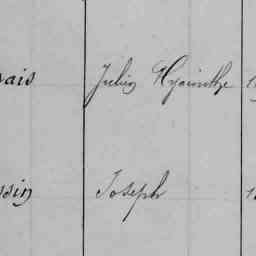 sais Julien Hyacinthe 1
ssin Joseph 1